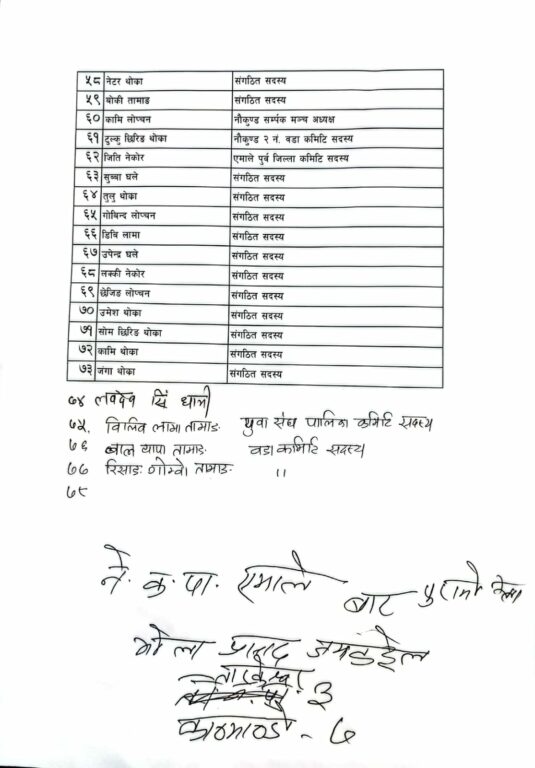 ५८ नेटर थोका संगठित सदस्य
५९ थोकी तामाङ संगठित सदस्य
६० कामि लोप्चन नौकुण्ड सर्म्पक मञ्च अध्यक्ष
६१ टुल्कु छिरिङ थोका नौकुण्ड २ नं. वडा कमिटि सदस्य
६२ जिति नेकोर एमाले पुर्ब जिल्ला कमिटि सदस्य
६३ सुब्बा घले संगठित सदस्य
६४ तुलु थोका संगठित सदस्य
६५ गोबिन्द लोप्चन संगठित सदस्य
६६ डिबि लामा संगठित सदस्य
६७ उपेन्द्र घले संगठित सदस्य
६८ लक्की नेकोर संगठित सदस्य
६९ छेजिङ लोप्चन संगठित सदस्य
७० उमेश थोका संगठित सदस्य
७१ सोम छिरिङ थोका संगठित सदस्य
७२ कामि थोका संगठित सदस्य
७३ जंगा थोका संगठित सदस्य
७४ लवदेव सिं धामी
७५. लामा तामाङ युवा संघ पालिका कमिटि सदस्य
७६ बाल तामाङ वडा कमिटि सदस्य
७७ रिसाङ तामाङ "
७८
ने. क. पा. एमाले बाट
भोला प्रसाद
३
काठमाडौं - ७